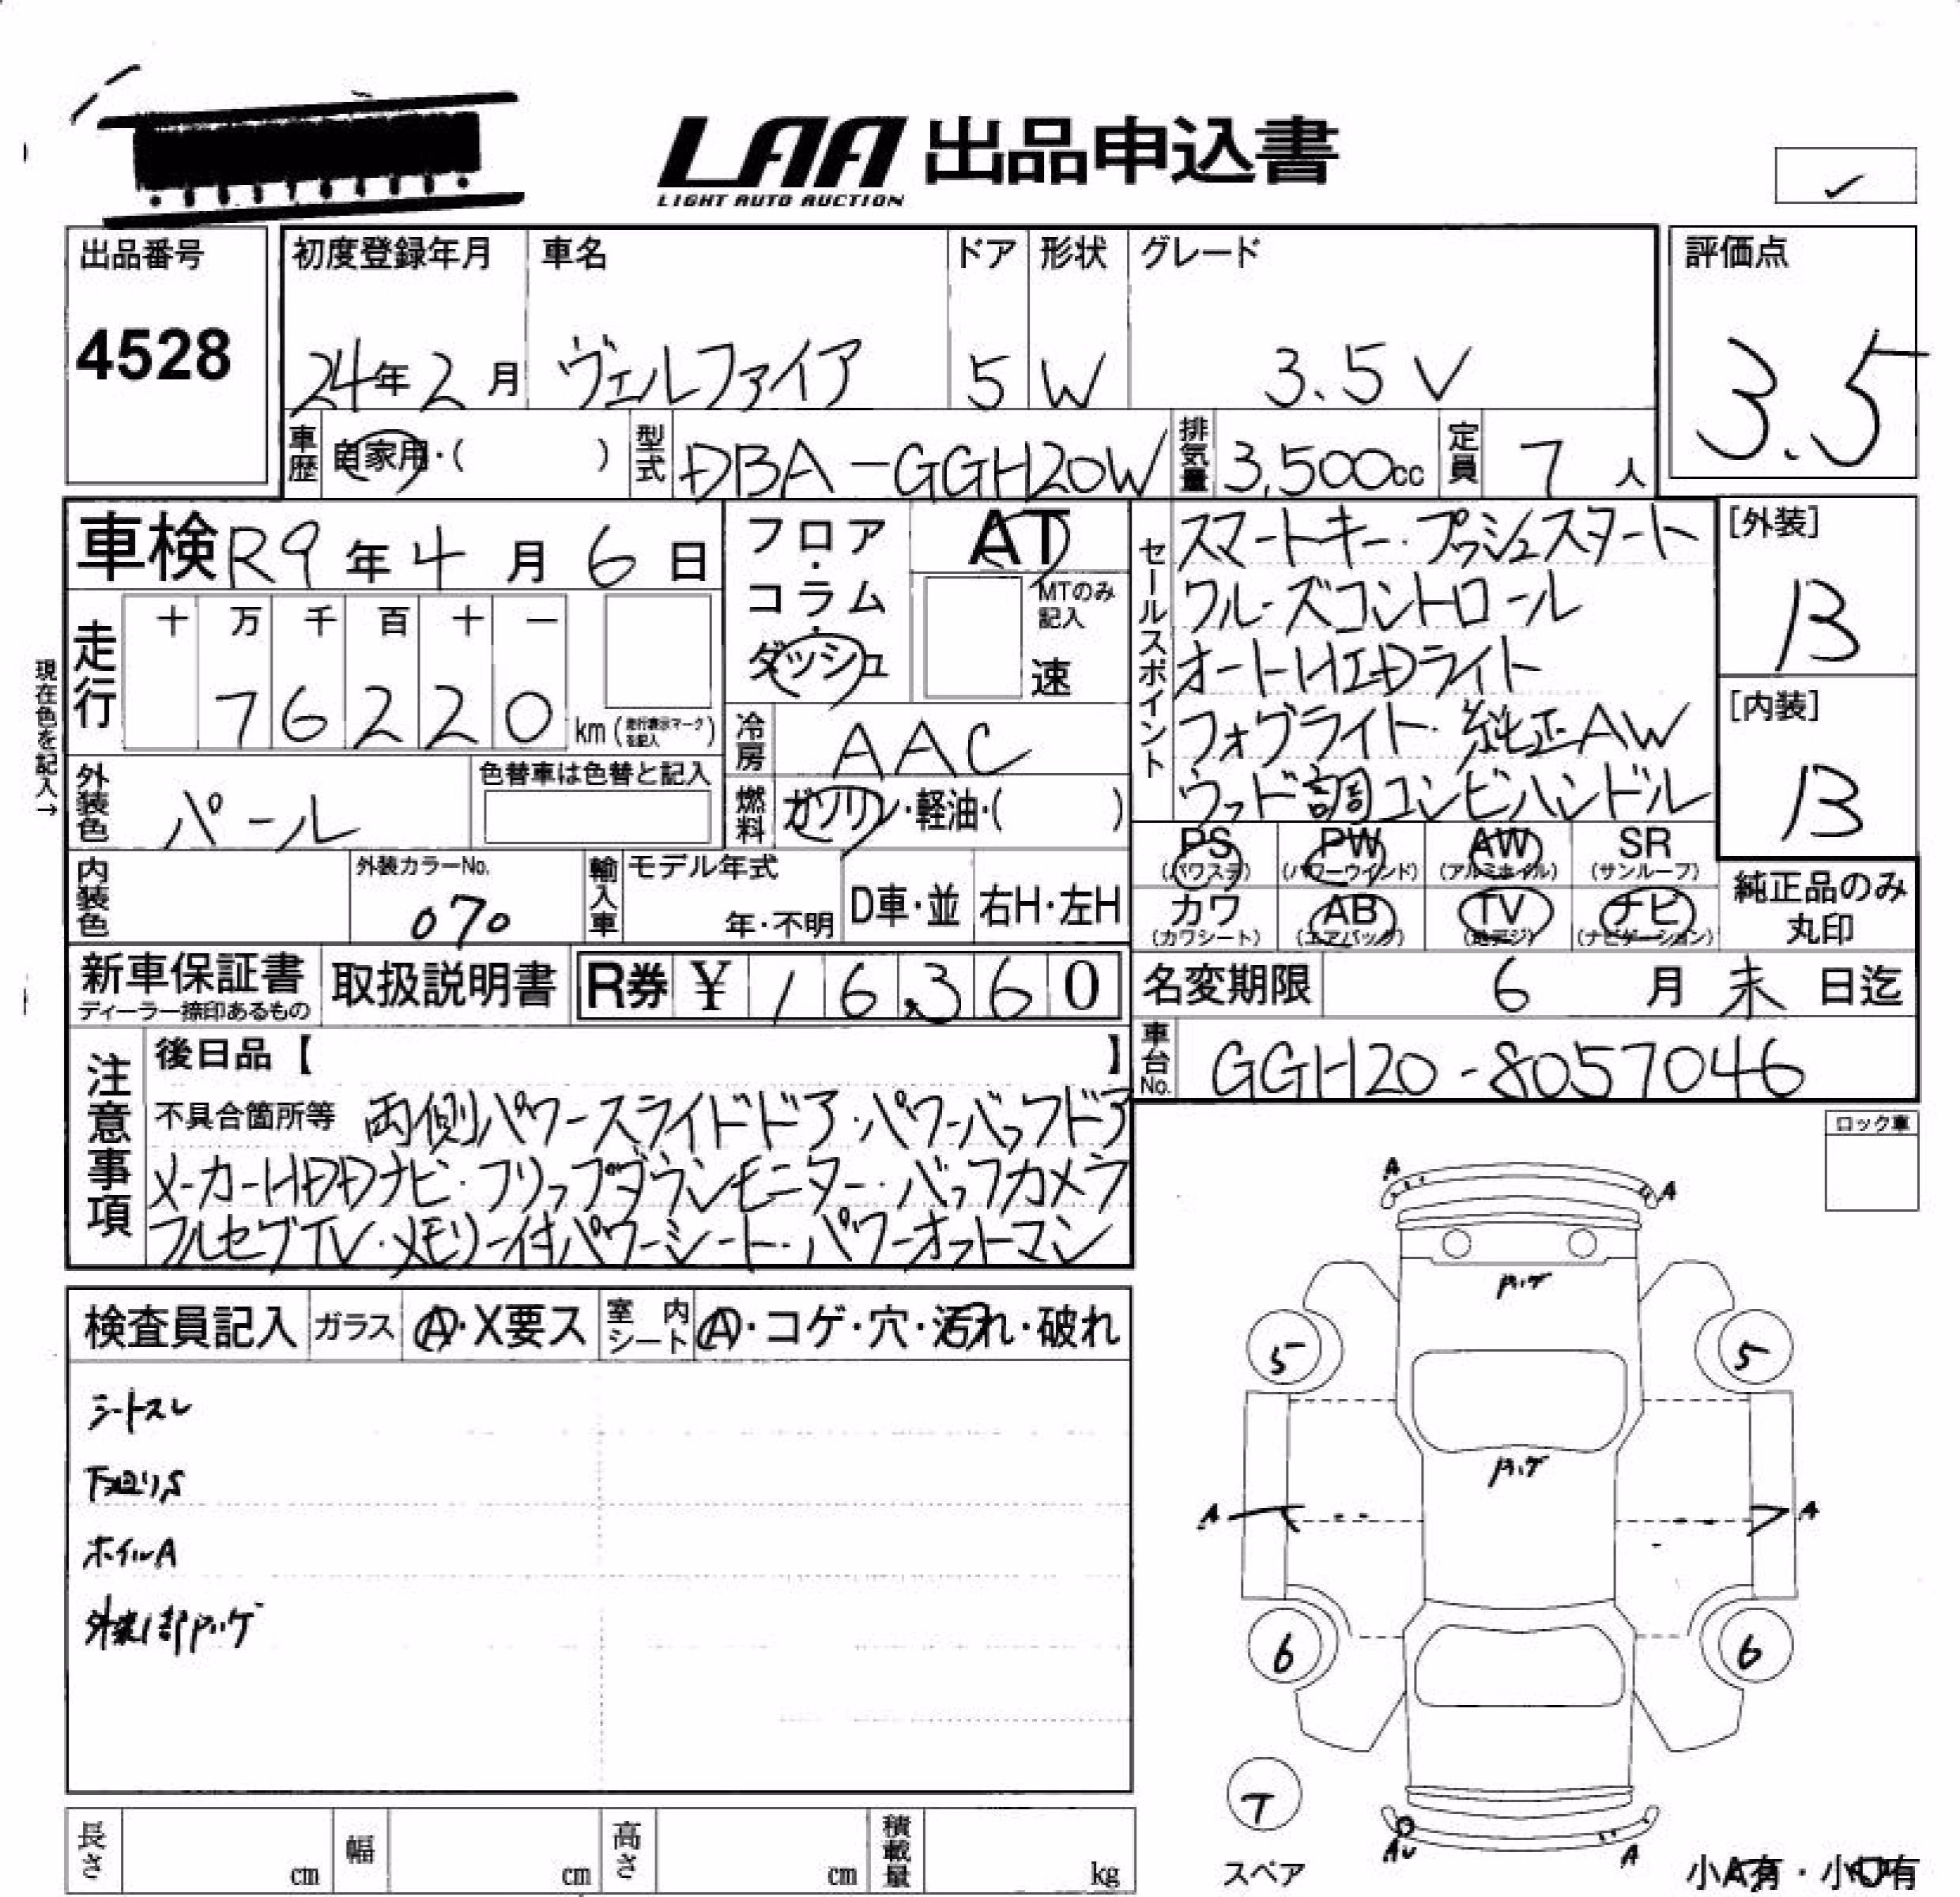 LAA 出品申込書
LIGHT AUTO AUCTION
出品番号
4528
初度登録年月
24年2月
車名
ヴェルファイア
ドア
5
形状
W
グレード
3.5V
評価点
3.5
車歴 自家用・( )
型式 DBA-GGH20W
排気量 3,500cc
定員 7人
車検 R9年4月6日
フロア・コラム・ダッシュ
AT
MTのみ記入
速
現在色を記入→
走行
十 万 千 百 十 一
76220
km(走行表示マークを記入)
冷房 AAC
燃料 ガソリン・軽油・( )
外装色 パール
色替車は色替と記入
内装色
外装カラーNo.
070
輸入車
モデル年式
年・不明
D車・並
右H・左H
セールスポイント
スマートキー・プッシュスタート
クルーズコントロール
オートHIDライト
フォグライト・純正AW
ウッド調コンビハンドル
[外装]
B
[内装]
B
PS (パワステ)
PW (パワーウインド)
AW (アルミホイル)
SR (サンルーフ)
カワ (カワシート)
AB (エアバック)
TV (地デジ)
ナビ (ナビゲーション)
純正品のみ
丸印
新車保証書
ディーラー捺印あるもの
取扱説明書
R券 ¥16,360
名変期限 6月末日迄
車台No. GGH20-8057046
注意事項
後日品【 】
不具合箇所等 両側パワースライドドア・パワーバックドア
メーカーHDDナビ・フリップダウンモニター・バックカメラ
フルセグTV・メモリー付パワーシート・パワーオットマン
ロック車
検査員記入
ガラス A・X要ス
室内シート A・コゲ・穴・汚れ・破れ
シートスレ
下回りS
ホイルA
外装1部ハゲ
A
A
ハゲ
5
5
ハゲ
A
A
6
6
T
スペア
AU
A
小A有・小U有
長さ cm
幅 cm
高さ cm
積載量 kg